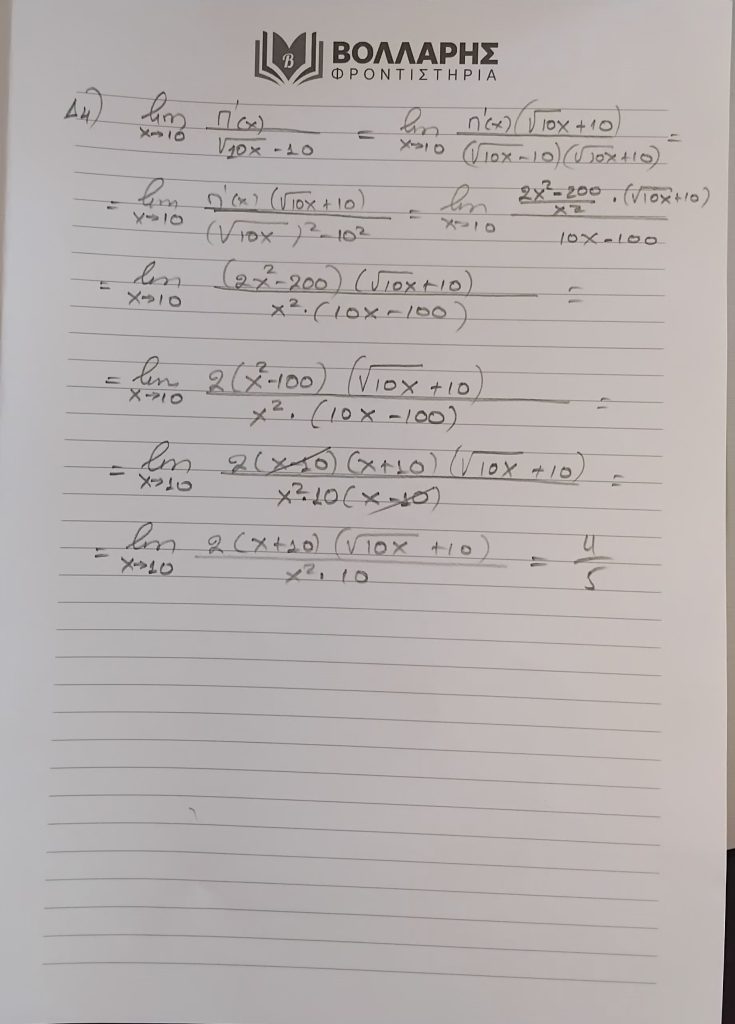 ΒΟΛΛΑΡΗΣ
ΦΡΟΝΤΙΣΤΗΡΙΑ
Δ4) lim_{x→10} Π'(x) / (√10x - 10) = lim_{x→10} Π'(x)(√10x + 10) / (√10x - 10)(√10x + 10) =
= lim_{x→10} Π'(x)(√10x + 10) / ((√10x)² - 10²) = lim_{x→10} ((2x² - 200)/x² · (√10x + 10)) / (10x - 100)
= lim_{x→10} (2x² - 200)(√10x + 10) / x²·(10x - 100) =
= lim_{x→10} 2(x² - 100)(√10x + 10) / x²·(10x - 100) =
= lim_{x→10} 2(x - 10)(x + 10)(√10x + 10) / x²·10(x - 10) =
= lim_{x→10} 2(x + 10)(√10x + 10) / x²·10 = 4/5